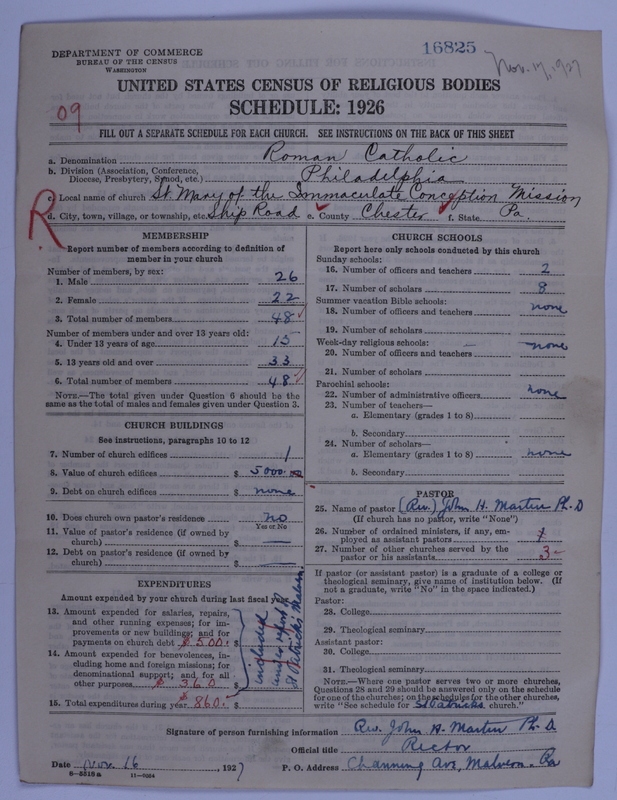 16825
Nov. 17, 1927
DEPARTMENT OF COMMERCE
BUREAU OF THE CENSUS
WASHINGTON
UNITED STATES CENSUS OF RELIGIOUS BODIES
SCHEDULE: 1926
09
FILL OUT A SEPARATE SCHEDULE FOR EACH CHURCH. SEE INSTRUCTIONS ON THE BACK OF THIS SHEET
a. Denomination Roman Catholic
b. Division (Association, Conference,
Diocese, Presbytery, Synod, etc.) Philadelphia
c. Local name of church St. Mary of the Immaculate Conception Mission
R
d. City, town, village, or township, etc. Ship Road e. County Chester f. State Pa.
MEMBERSHIP
Report number of members according to definition of
member in your church
Number of members, by sex:
1. Male 26
2. Female 22
3. Total number of members 48
Number of members under and over 13 years old:
4. Under 13 years of age 15
5. 13 years old and over 33
6. Total number of members 48
NOTE.—The total given under Question 6 should be the
same as the total of males and females given under Question 3.
CHURCH BUILDINGS
See instructions, paragraphs 10 to 12
7. Number of church edifices 1
8. Value of church edifices $ 5000
9. Debt on church edifices $ none
10. Does church own pastor's residence no
Yes or No
11. Value of pastor's residence (if owned by
church) $ —
12. Debt on pastor's residence (if owned by
church) $ —
EXPENDITURES
Amount expended by your church during last fiscal year
13. Amount expended for salaries, repairs,
and other running expenses; for im-
provements or new buildings; and for
payments on church debt $500. $
14. Amount expended for benevolences, in-
cluding home and foreign missions; for
denominational support; and for all
other purposes $ 360 $
15. Total expenditures during year $860. $
included
under report of
St Patrick's Malvern.
CHURCH SCHOOLS
Report here only schools conducted by this church
Sunday schools:
16. Number of officers and teachers 2
17. Number of scholars 8
Summer vacation Bible schools:
18. Number of officers and teachers none
19. Number of scholars
Week-day religious schools:
20. Number of officers and teachers none
21. Number of scholars
Parochial schools:
22. Number of administrative officers none
23. Number of teachers—
a. Elementary (grades 1 to 8)
b. Secondary
24. Number of scholars—
a. Elementary (grades 1 to 8) none
b. Secondary
PASTOR
25. Name of pastor (Rev.) John H. Martin Ph. D
(If church has no pastor, write "None")
26. Number of ordained ministers, if any, em-
ployed as assistant pastors 1
27. Number of other churches served by the
pastor or his assistants 3
If pastor (or assistant pastor) is a graduate of a college or
theological seminary, give name of institution below. (If
not a graduate, write "No" in the space indicated.)
Pastor:
28. College
29. Theological seminary
Assistant pastor:
30. College
31. Theological seminary
NOTE.—Where one pastor serves two or more churches,
Questions 28 and 29 should be answered only on the schedule
for one of the churches; on the schedules for the other churches,
write "See schedule for St Patricks church."
Signature of person furnishing information Rev. John H. Martin Ph. D
Official title Rector
Date Nov. 16, 1927 P. O. Address Channing Ave, Malvern. Pa
6-5518a 11-9264